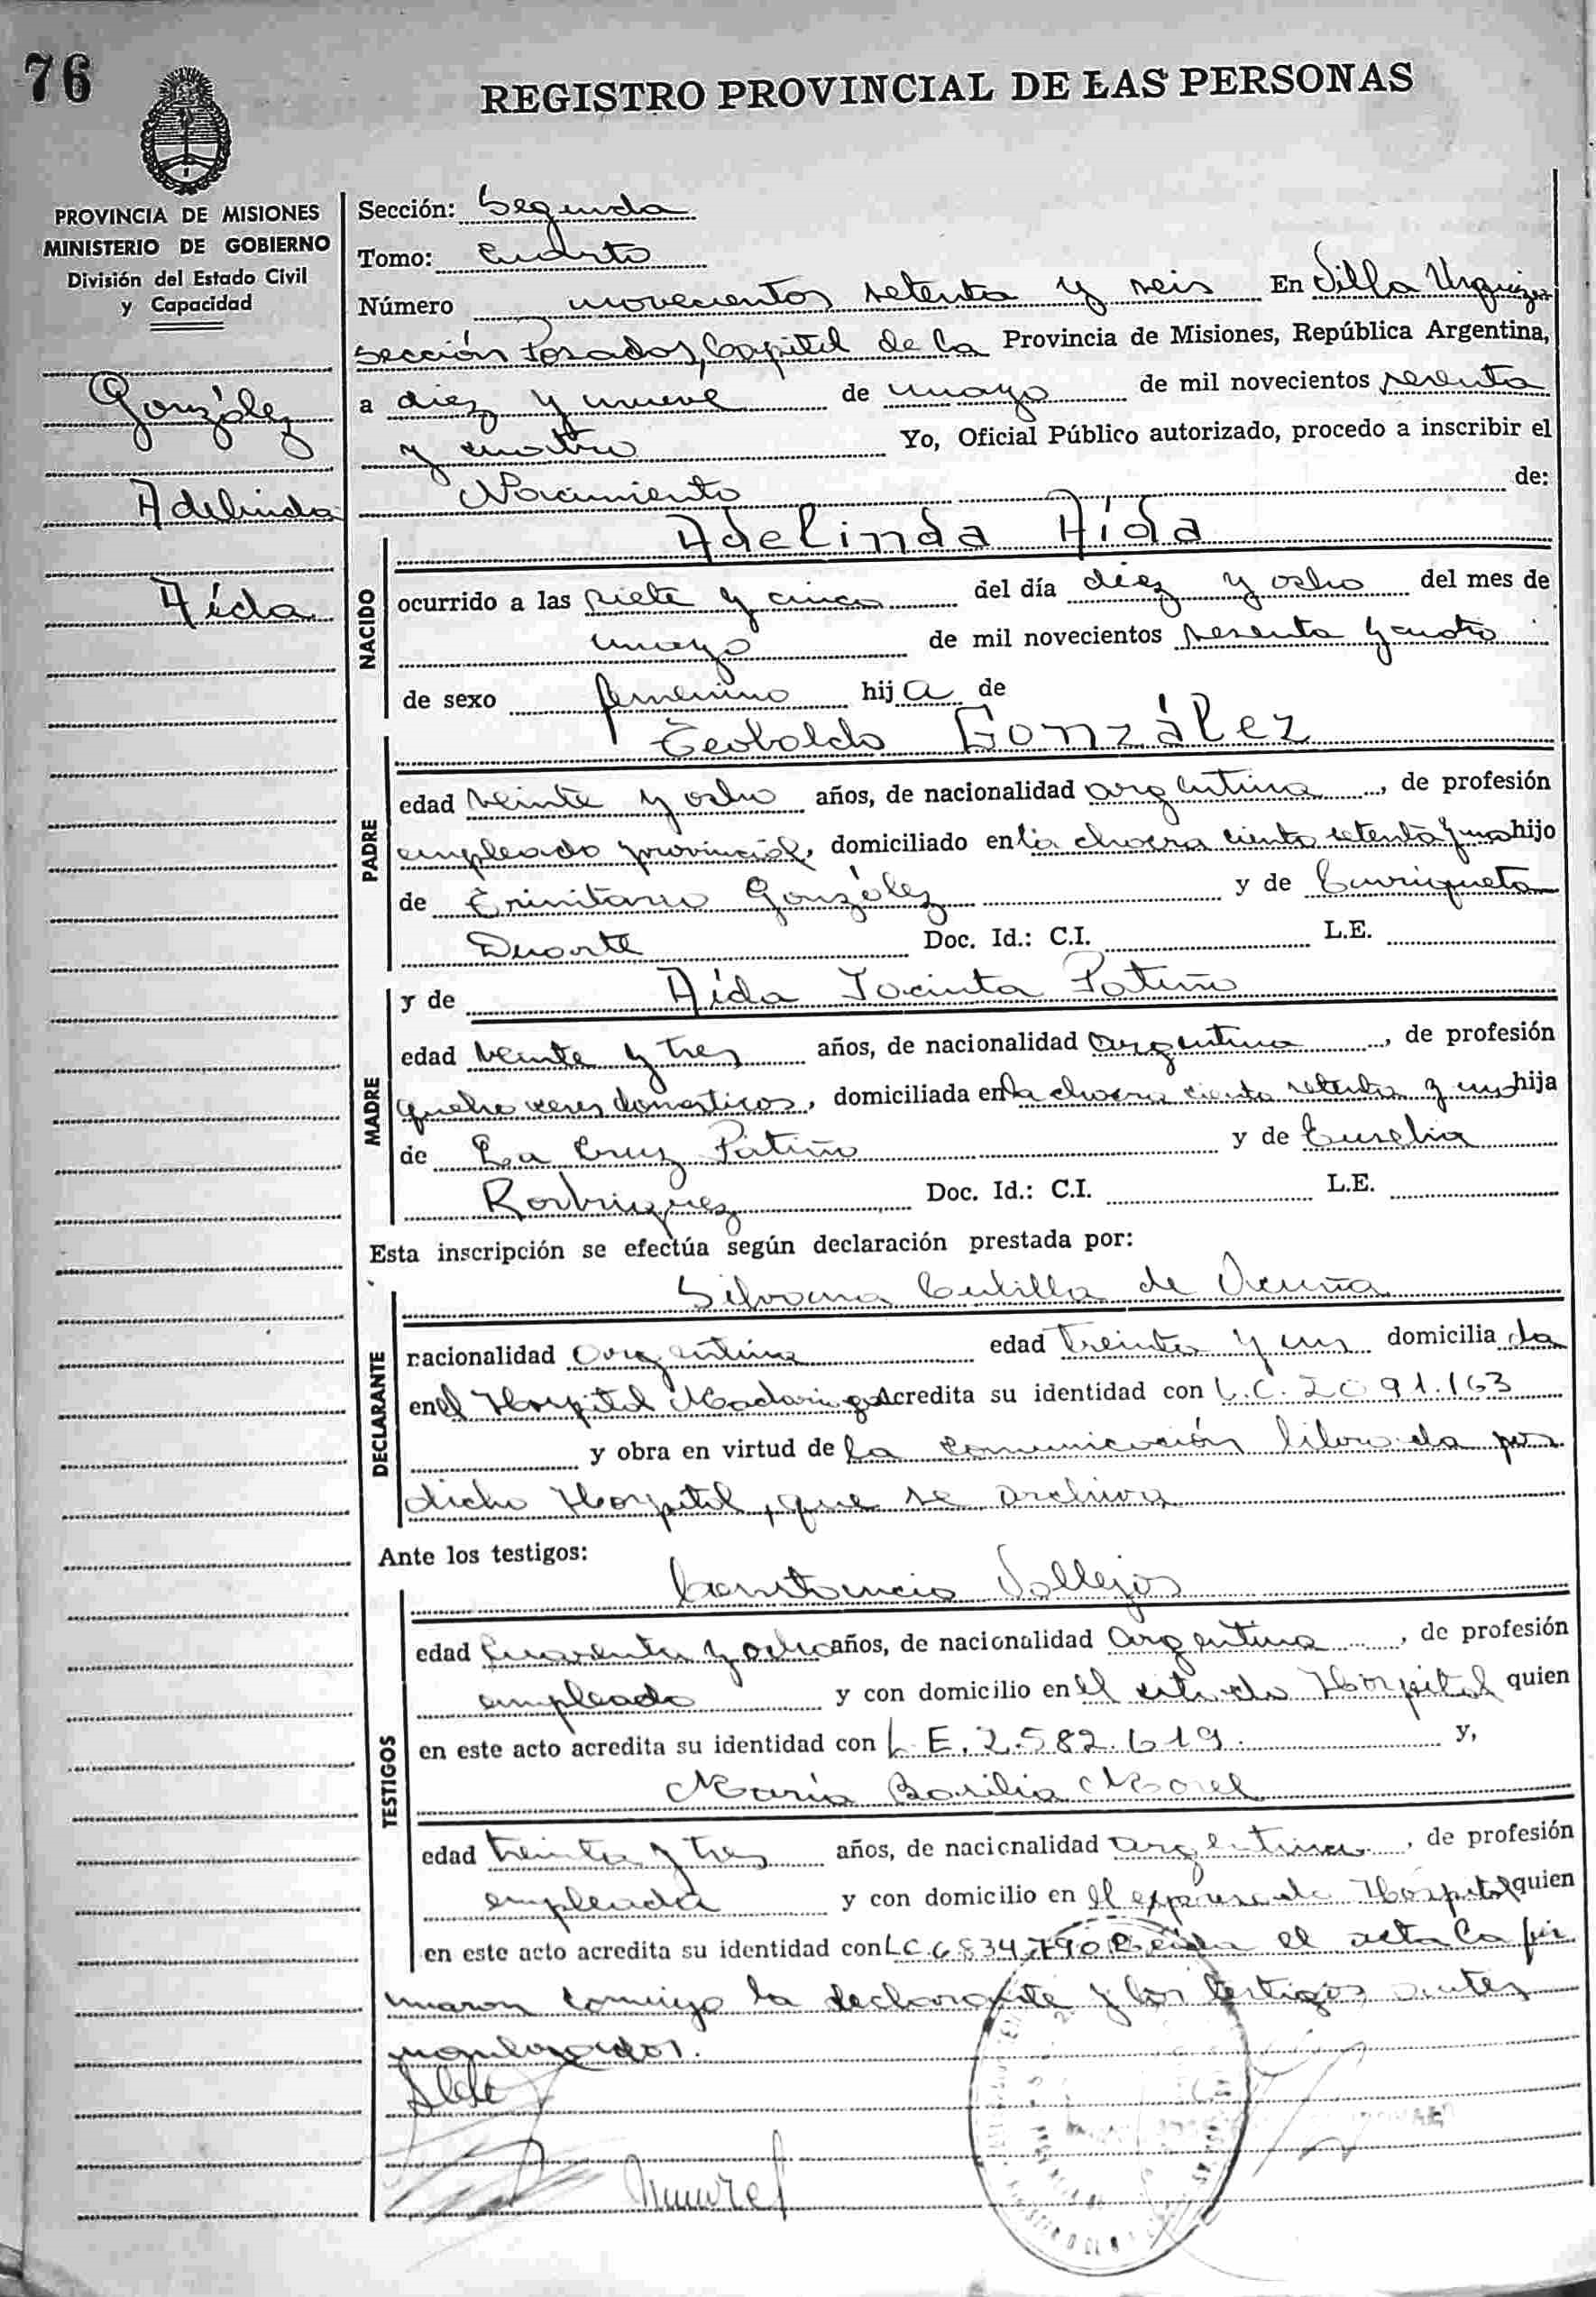 76
REGISTRO PROVINCIAL DE LAS PERSONAS
PROVINCIA DE MISIONES
MINISTERIO DE GOBIERNO
División del Estado Civil
y Capacidad
González
Adelinda
Aída
Sección: Segunda
Tomo: Cuarto
Número novecientos setenta y seis En Villa Urquiza
sección Posadas, Capital de la Provincia de Misiones, República Argentina,
a diez y nueve de mayo de mil novecientos sesenta
y cuatro Yo, Oficial Público autorizado, procedo a inscribir el
Nacimiento de:
NACIDO
Adelinda Aída
ocurrido a las siete y cinco del día diez y ocho del mes de
mayo de mil novecientos sesenta y cuatro
de sexo femenino hija de
PADRE
Teobaldo González
edad veinte y ocho años, de nacionalidad argentina, de profesión
empleado provincial, domiciliado en la chacra ciento setenta y uno hijo
de Trinitario González y de Enriqueta
Duarte Doc. Id.: C.I. L.E.
MADRE
y de Aída Jacinta Patiño
edad veinte y tres años, de nacionalidad argentina, de profesión
quehaceres domésticos, domiciliada en la chacra ciento setenta y uno hija
de La Cruz Patiño y de Eusebia
Rodríguez Doc. Id.: C.I. L.E.
Esta inscripción se efectúa según declaración prestada por:
DECLARANTE
Silvana de Acuña
nacionalidad argentina edad treinta y un domicilia da
en el Hospital Madariaga Acredita su identidad con L.C. 2091.163
y obra en virtud de la comunicación librada por
dicho Hospital, que se archiva
Ante los testigos:
TESTIGOS
Constancio Vallejos
edad cuarenta y ocho años, de nacionalidad argentina, de profesión
empleado y con domicilio en el citado Hospital quien
en este acto acredita su identidad con L.E. 2.582.619. y,
María Basilia Morel
edad treinta y tres años, de nacicnalidad argentina, de profesión
empleada y con domicilio en el expresado Hospital quien
en este acto acredita su identidad con LC 6834.790 Leída el acta la fir
maron conmigo la declarante y los testigos antes